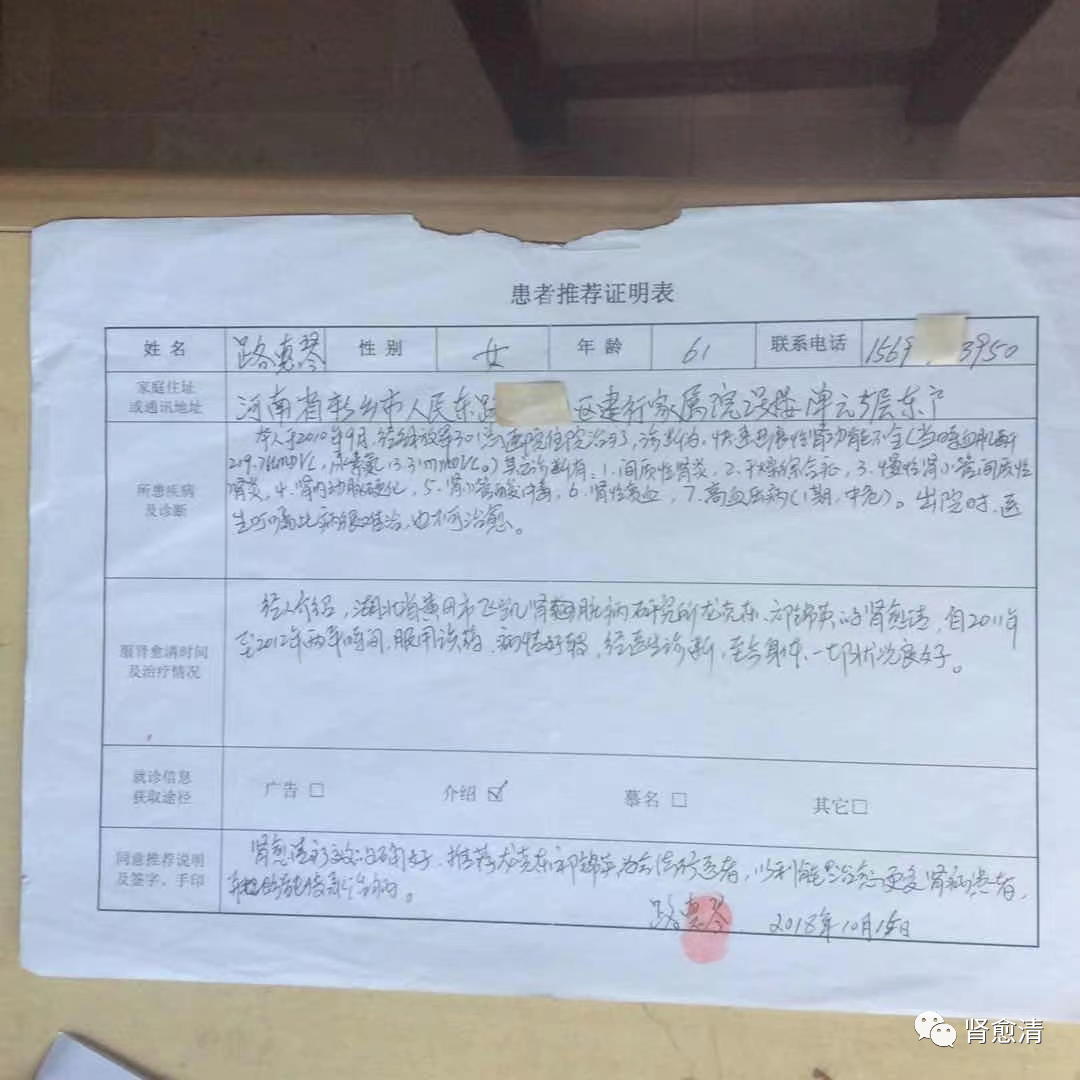 患者推荐证明表
姓名 路惠琴 性别 女 年龄 61 联系电话 1569 3950
家庭住址
或通讯地址
河南省新乡市人民东路 区建行家属院 楼 单元5层东户
所患疾病
及诊断
本人于2010年9月,经解放军301总医院住院治疗,诊断为:快速进展性肾功能不全(当时血肌酐
219.7 ,尿素氮13.31mmol/L。)其它诊断有:1.间质性肾炎,2.干燥综合征,3.慢性肾小管间质性
肾炎,4.肾内动脉硬化,5.肾小管酸中毒,6.肾性贫血,7.高血压病(1期,中危)。出院时,医
生叮嘱此病很难治,也不可治愈。
服肾愈清时间
及治疗情况
经人介绍,湖北省黄冈市飞凯肾 病研究所龙克东、祁锦英的肾愈清,自2011年
至2012年两年时间,服用该药,病情好转,经医生诊断,至今身体一切状况良好。
就诊信息
获取途径
广告 □ 介绍 ☑ 慕名 □ 其它□
同意推荐说明
及签字、手印
肾愈清疗效的确好,推荐龙克东祁锦英为 医者,以利能 治愈更多肾病患者,
病。
路惠琴 2018年10月15日
肾愈清